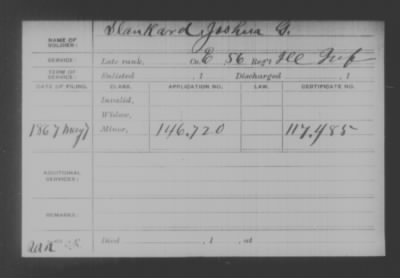 NAME OF SOLDIER: Blankard Joshua G.
SERVICE: Late rank, Co. E 56 Reg't Ill Inf
TERM OF SERVICE: Enlisted , 1 Discharged , 1
DATE OF FILING. CLASS. APPLICATION NO. LAW. CERTIFICATE NO.
Invalid,
Widow,
1867 May 7 Minor, 146.720 117.485
ADDITIONAL SERVICES:
REMARKS:
Died , 1 , at